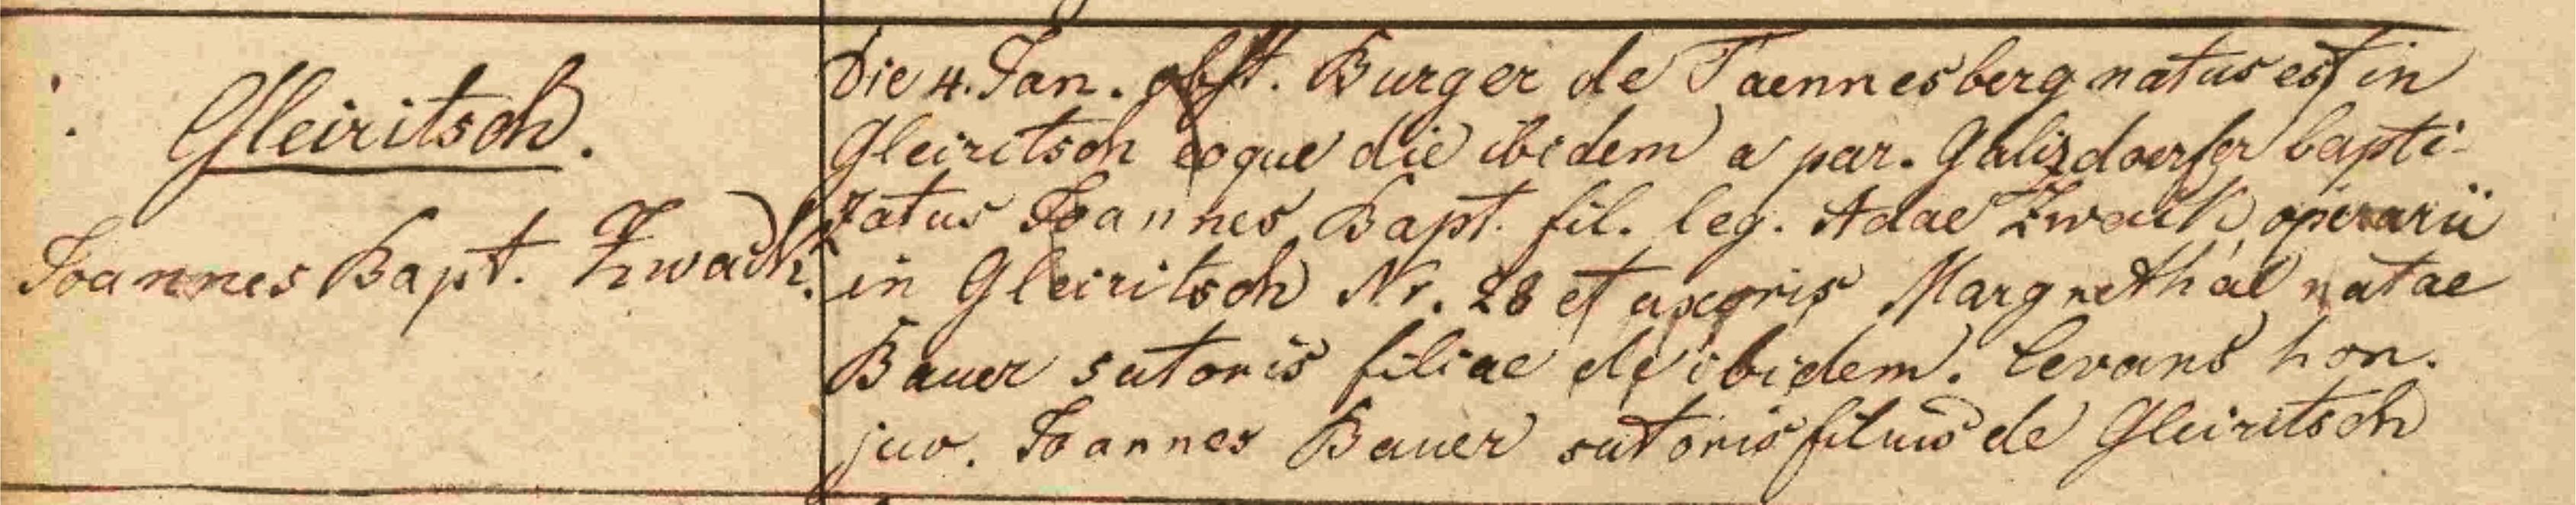 Gleiritsch.
Joannes Bapt. Zwack.
Die 4. Jan. obst. Burger de Taennesberg natus est in
Gleiritsch eoque die ibidem a par. Galizdoerfer bapti-
zatus Joannes Bapt. fil. leg. Adae Zwack operarii
in Gleiritsch Nr. 28 et uxoris Margrethae natae
Bauer sutoris filiae de ibidem. Levans hon.
juv. Joannes Bauer sutoris filius de Gleiritsch